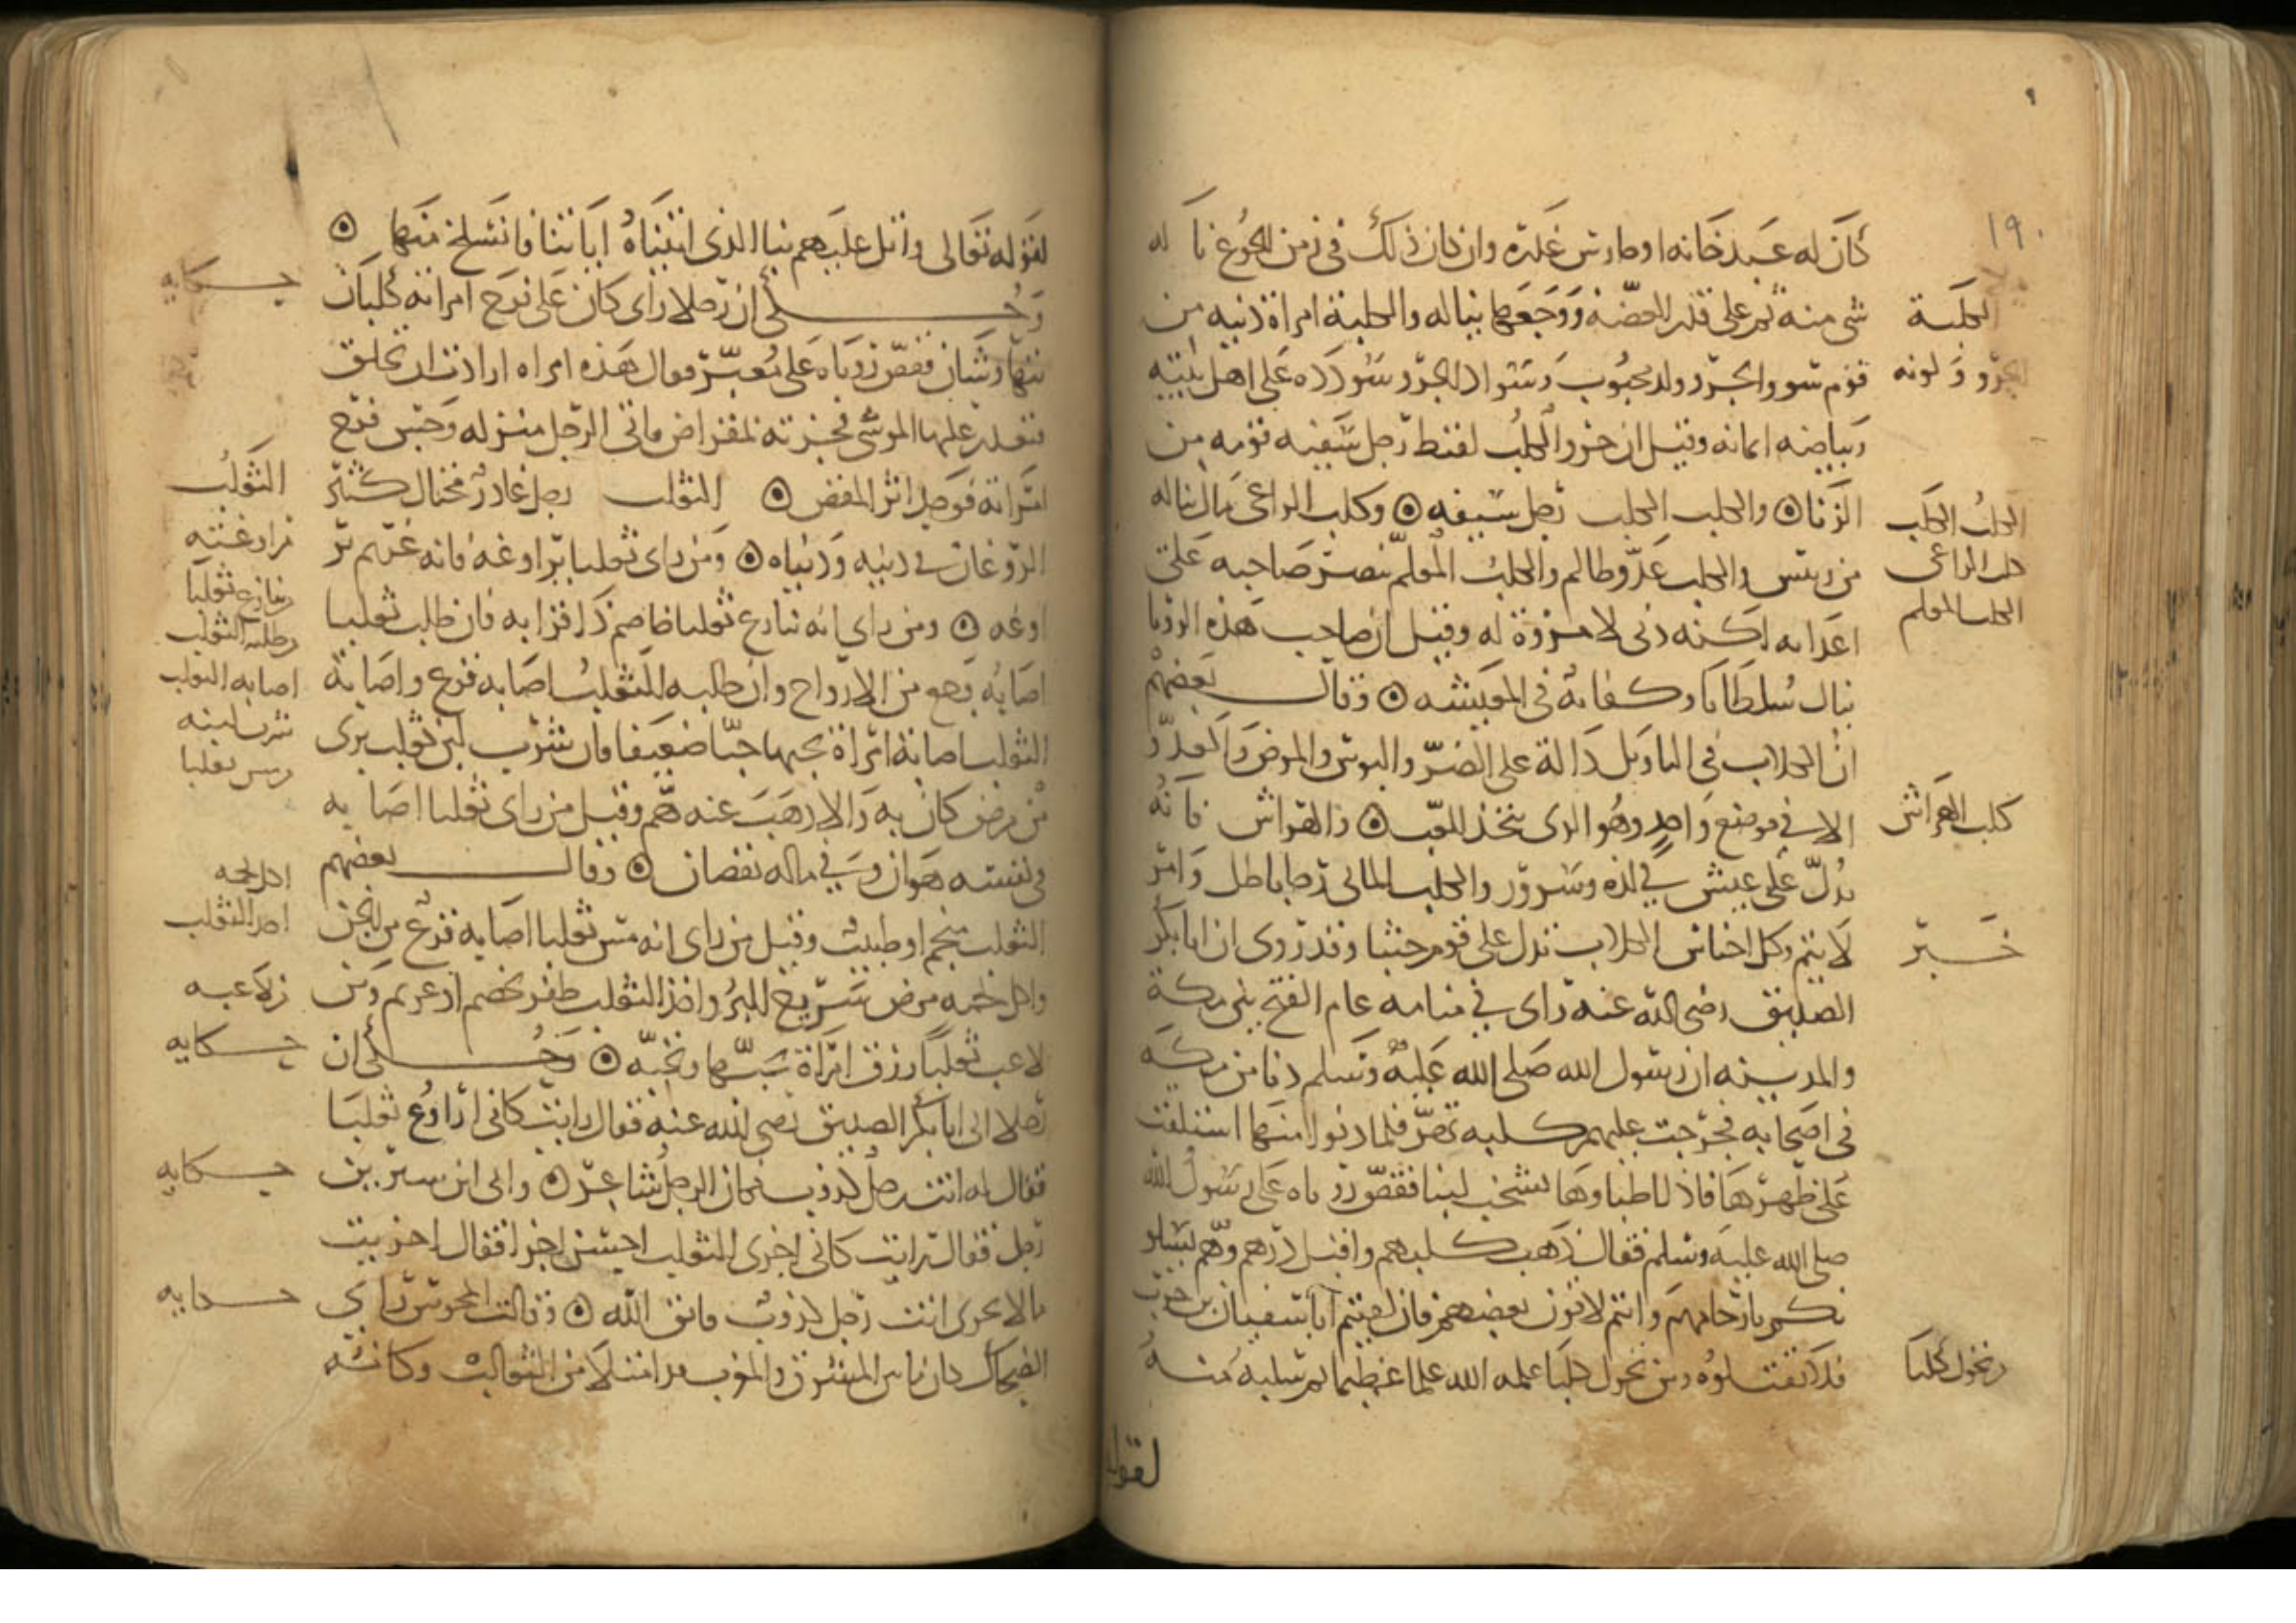 ١٩٠
كان له عبد خانه او حارس غدره وان كان ذلك في زمن الجوع نا له
شي منه ثم على قدر العضة ووجعها يناله والكلبة امراة دنية من
قوم سوو والجرو ولد محبوب وسواد الجرو سودده على اهل بيته
وبياضه ايمانه وقيل ان جرو الكلب لقيط رجل سفيه قومه من
الزنا ۞ والكلب الكلب رجل سفيه ۞ وكلب الراعي مال يناله
من رييس والكلب عدو ظالم والكلب المعلم ينصر صاحبه على
اعدايه لكنه دني لا مروة له وقيل ان صاحب هذه الرويا
ينال سلطانا وكفاية في المعيشة ۞ وقال بعضهم
ان الكلاب في التاويل دالة على الضر والبوس والمرض والعدو
الا في موضع واحد وهو الذي يتخذ للعب ۞ والهراش فانه
يدل على عيش في لذة وسرور والكلب المايي رجا باطل وامر
لا يتم وكل اجناس الكلاب تدل على قوم خبثا وقد روي ان ابا بكر
الصديق رضي الله عنه راى في منامه عام الفتح بين مكة
والمدينة ان رسول الله صلى الله عليه وسلم دنا من مكة
في اصحابه فخرجت عليهم كلبة تهر فلما دنوا منها استلقت
على ظهرها فاذا اطباوها تشخب لبنا فقص روياه على رسول الله
صلى الله عليه وسلم فقال ذهب كلبهم واقبل درهم وهم يسايلو
نكم بارحامهم وانتم لاقون بعضهم فان لقيتم ابا سفيان بن حرب
فلا تقتلوه ومن تحول كلبا علمه الله علما عظيما ثم سلبه منه
لقوله
الكلبة
الجرو ولونه
الكلب الكلب
كلب الراعي
الكلب المعلم
كلب الهراش
خبر
وتحول كلبا
لقوله تعالى واتل عليهم نبا الذي اتيناه اياتنا فانسلخ منها ۞
وحكي ان رجلا راى كان على فرج امراته كلبان
يتهارشان فقص روياه على معبر فقال هذه امراه ارادت ان تحلق
فتعذر عليها الموسى فجزته بمقراض فاتى الرجل منزله وجس فرج
امراته فوجد اثر المقص ۞ الثعلب رجل غادر محتال كثير
الروغان في دينه ودنياه ۞ ومن راى ثعلبا يراوغه فانه غريم ير
اوغه ۞ ومن راى انه ينازع ثعلبا خاصم ذا قرابه فان طلب ثعلبا
اصابه وجع من الارواح وان طلبه الثعلب اصابه فزع واصابة
الثعلب اصابة امراة يحبها حبا ضعيفا فان شرب لبن ثعلب برى
من مرض كان به والا ذهب عنه هم وقيل من راى ثعلبا اصابه
في نفسه هوان وفي ماله نقصان ۞ وقال بعضهم
الثعلب منجم او طبيب وقيل من راى انه مس ثعلبا اصابه فزع من الجن
واكل لحمه مرض سريع البرو واخذ الثعلب ظفر بخصم او غريم ومن
لاعب ثعلبا رزق امراة يحبها وتحبه ۞ وحكي ان
رجلا اتى ابا بكر الصديق رضي الله عنه فقال رايت كاني اراوغ ثعلبا
فقال له انت رجل كذوب فكان الرجل شاعرا ۞ واتى ابن سيرين
رجل فقال رايت كاني اجري الثعلب احسن اجرا فقال اجريت
مالا يجرى انت رجل كذوب فاتق الله ۞ وقالت المجوس راى
الضحاك كان ما بين المشرق والمغرب قد امتلا من الثعالب وكانه
حكايه
الثعلب
مراوغته
ونازع ثعلبا
وطلبه الثعلب
اصابه الثعلب
شرب لبنه
ومس ثعلبا
اكل لحمه
اخذ الثعلب
ولاعبه
حكايه
حكايه
حكايه